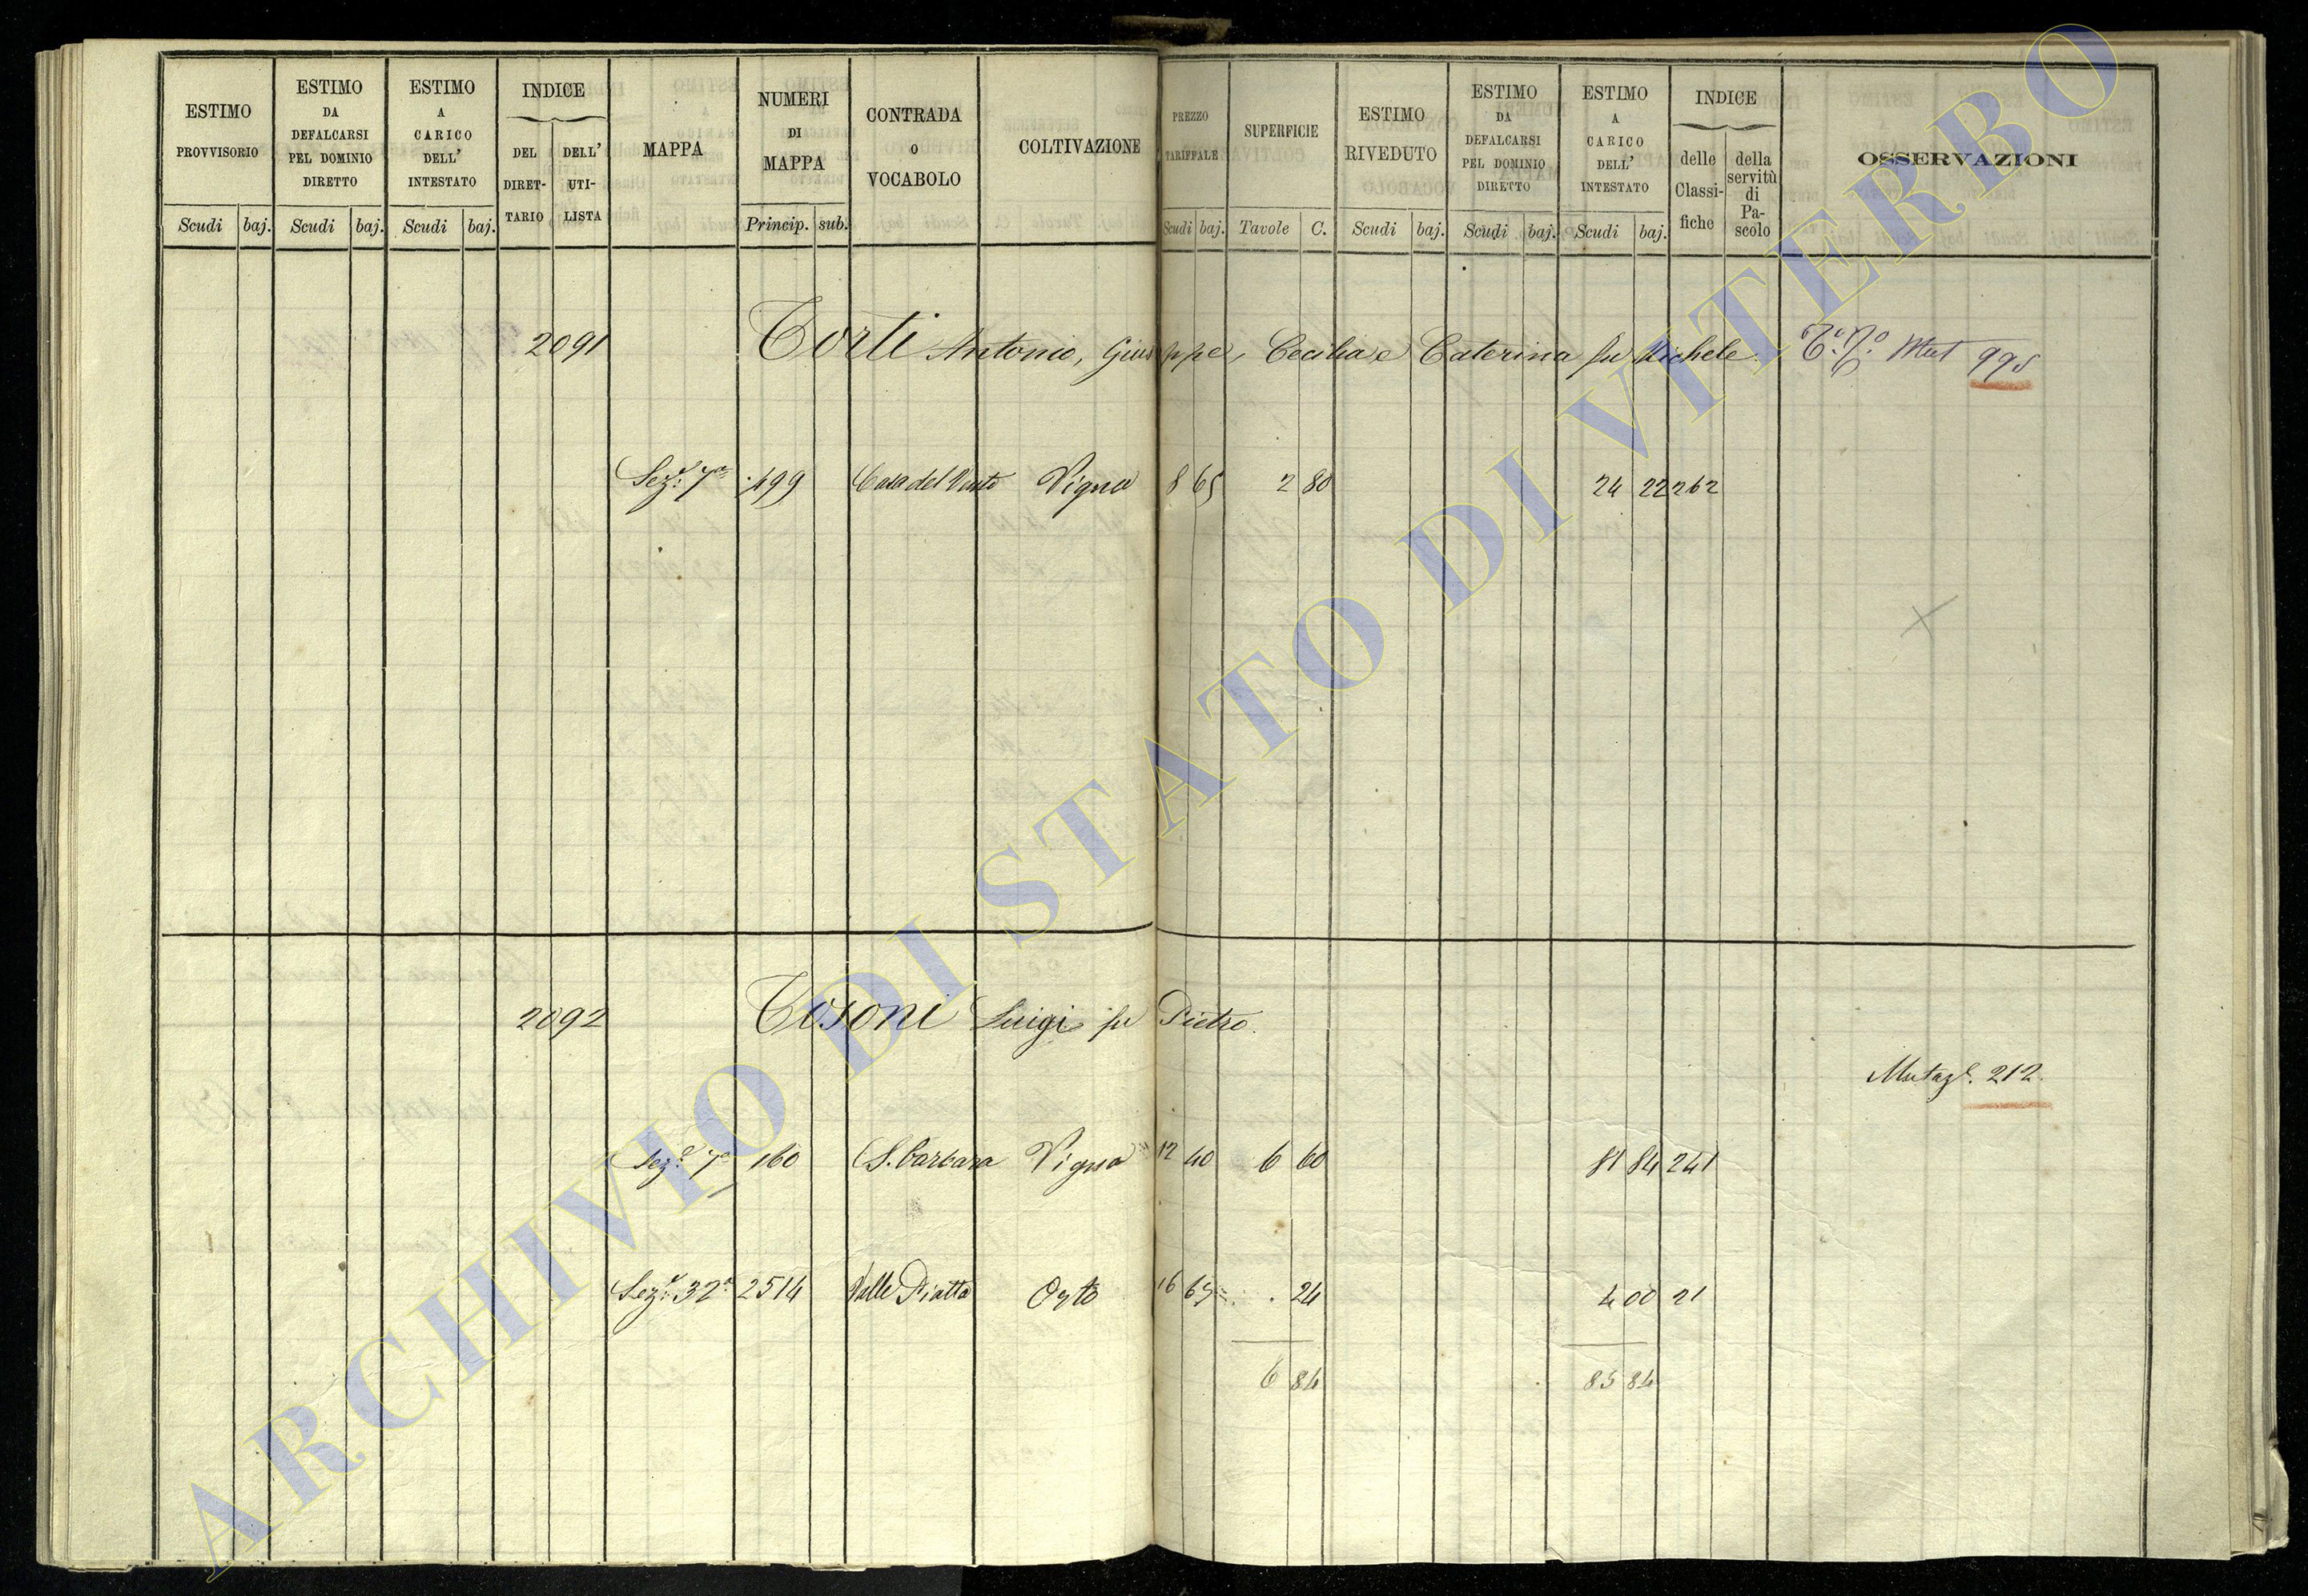 ESTIMO PROVVISORIO
Scudi baj.
ESTIMO DA DEFALCARSI PEL DOMINIO DIRETTO
Scudi baj.
ESTIMO A CARICO DELL' INTESTATO
Scudi baj.
INDICE
DEL DIRET-TARIO
DELL' UTI-LISTA
MAPPA
NUMERI DI MAPPA
Princip. sub.
CONTRADA O VOCABOLO
COLTIVAZIONE
PREZZO TARIFFALE
Scudi baj.
SUPERFICIE
Tavole C.
ESTIMO RIVEDUTO
Scudi baj.
ESTIMO DA DEFALCARSI PEL DOMINIO DIRETTO
Scudi baj.
ESTIMO A CARICO DELL' INTESTATO
Scudi baj.
INDICE
delle Classi-fiche
della servitù di Pa-scolo
OSSERVAZIONI
2091 Torti Antonio, Giuseppe, Cecilia e Caterina fu Michele Mut 995
Sez.e 7a 499 Casa del Vento Vigna 8 65 2 80 24 22 262
2092 Tosoni Luigi fu Pietro.
Mutaz.e 212.
Sez.e 7a 160 S. Barbara Vigna 12 40 6 60 81 84 241
Sez.e 32a 2514 Valle Piatta Orto 16 65 . 24 4 00 21
6 84 85 84
ARCHIVIO DI STATO DI VITERBO